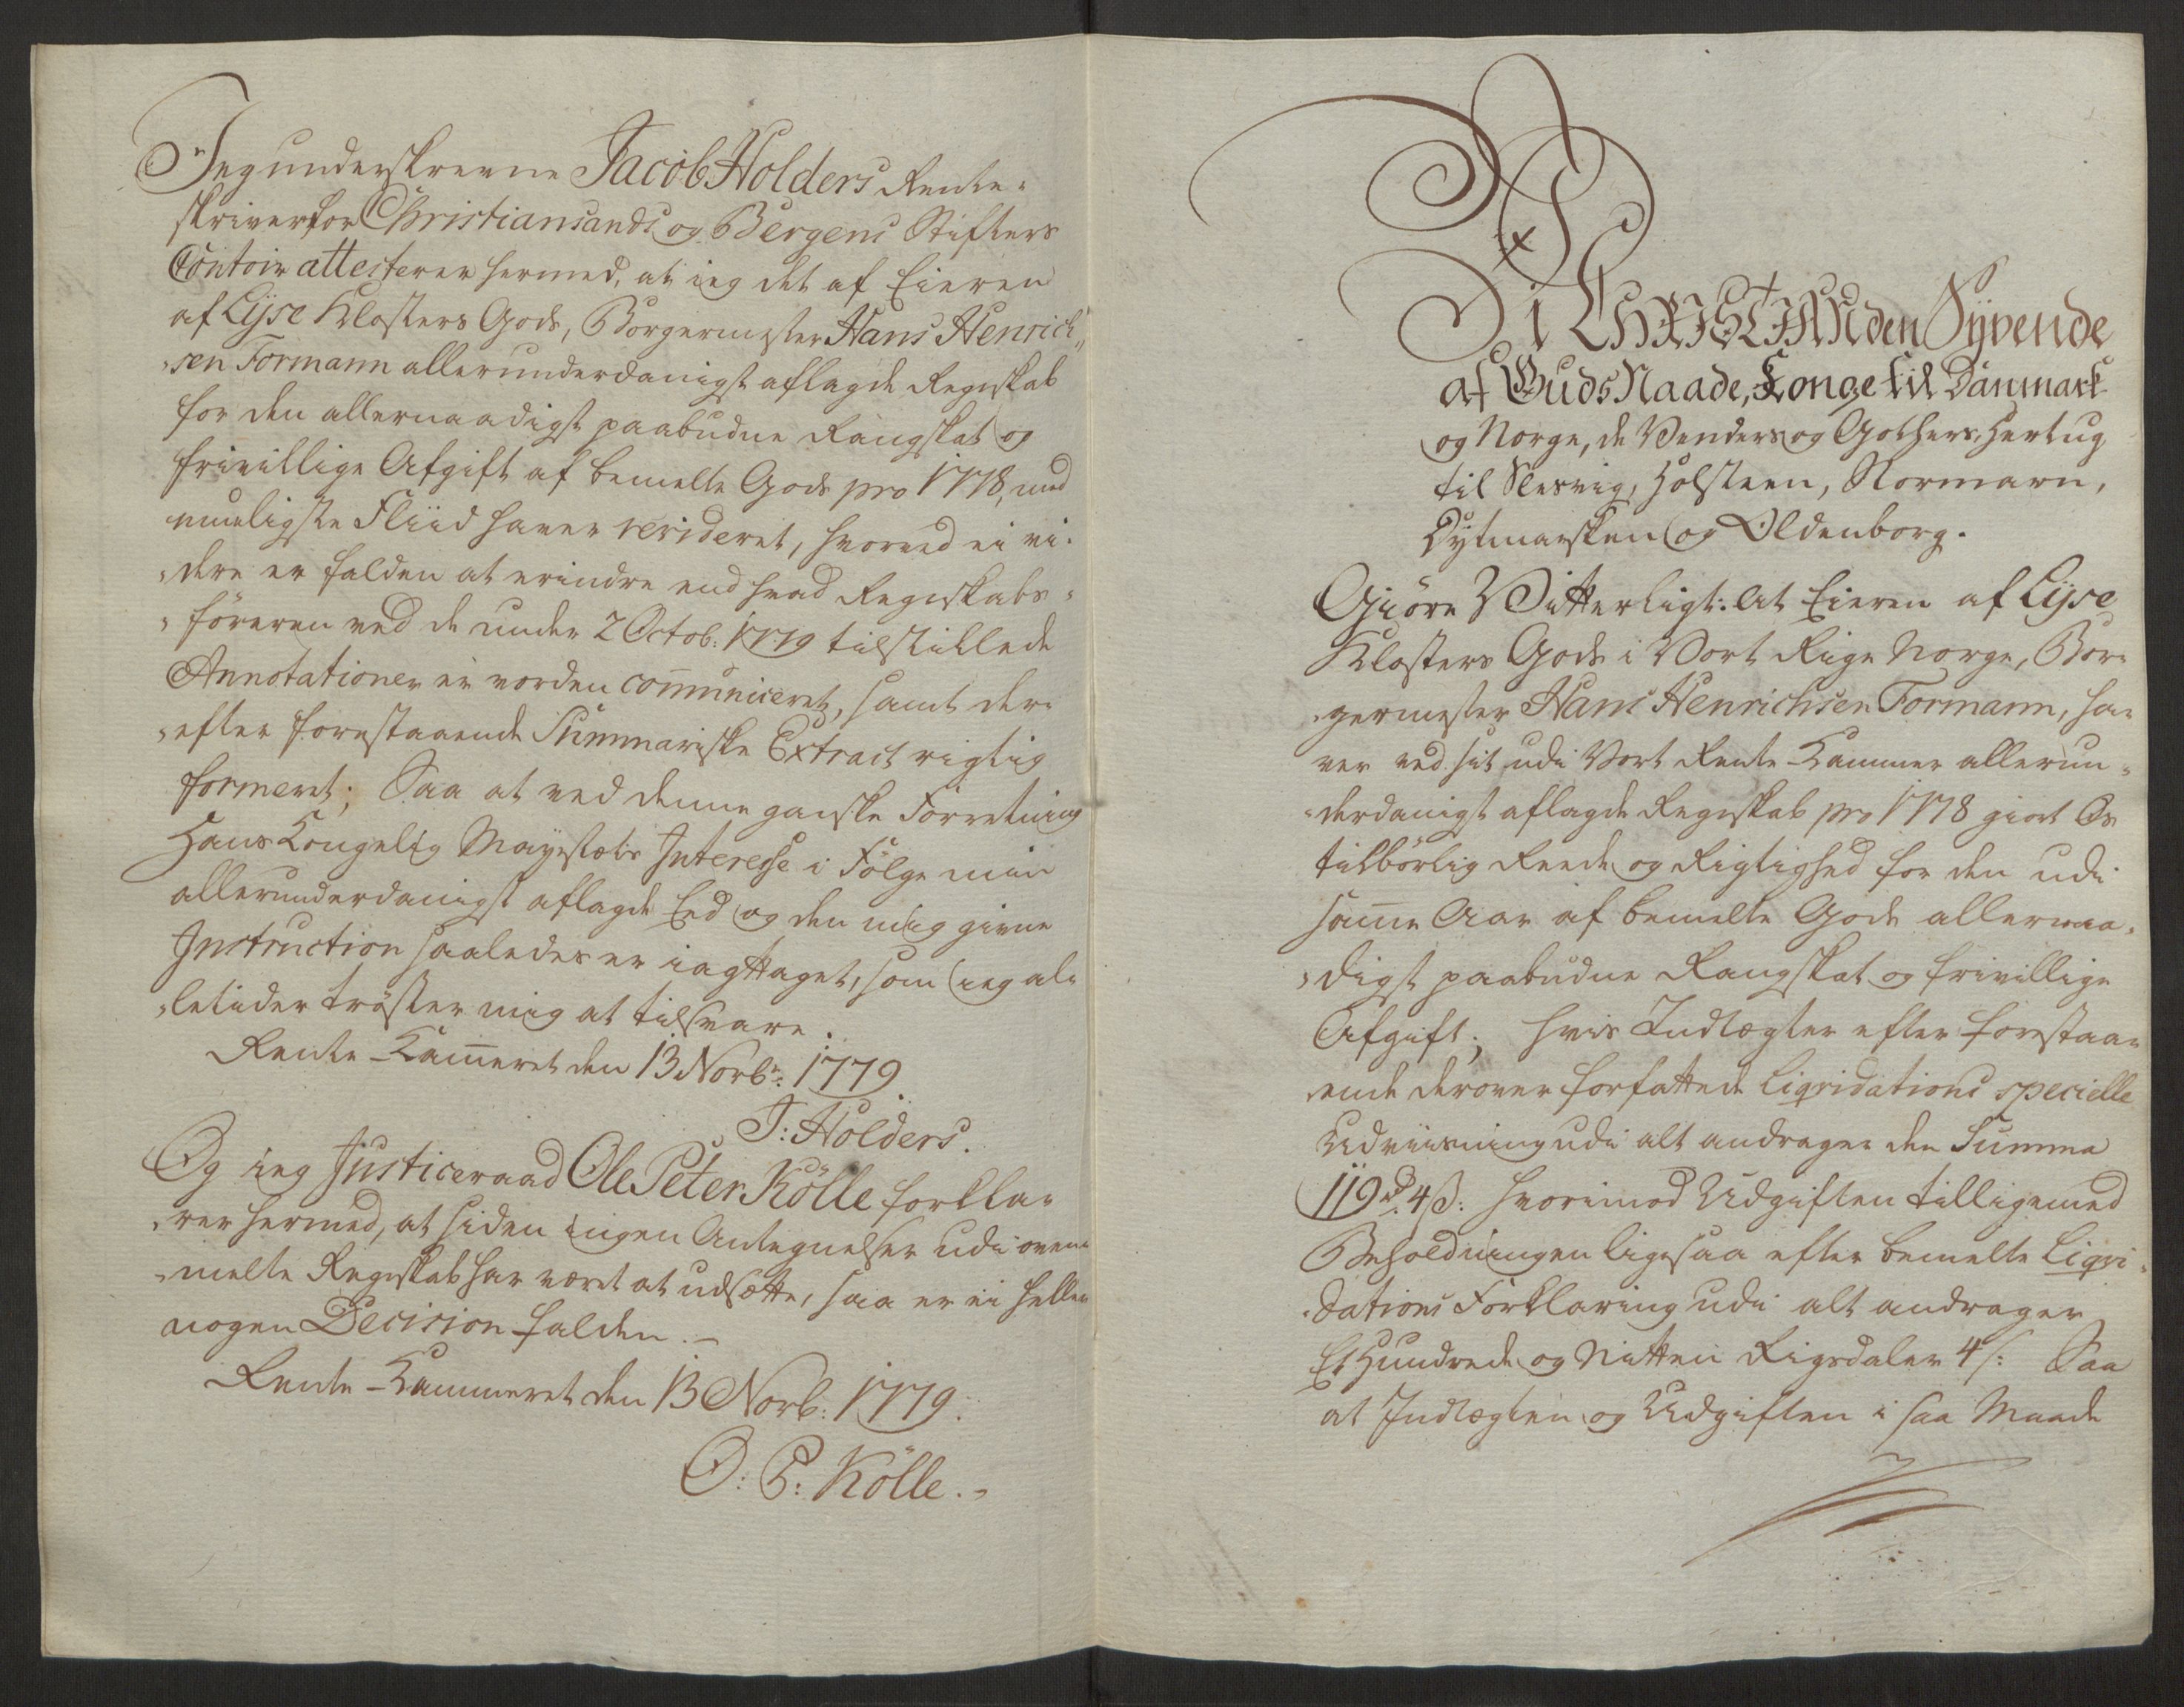 Jeg underskrevne Jacob Holders Rente-
skriver for Christiansands og Bergens Stifters
Contoir attesterer hermed, at ieg det af Eieren
af Lyse Klosters Gods, Borgermester Hans Henrich-
sen Formann allerunderdanigst aflagde Regnskab
for den allernaadigst paabudne Rangskat og
frivillige Afgift af bemelte Gods pro 1778, med
mueligste Fliid haver revideret, hvorved ei vi-
dere er falden at erindre end hvad Regnskabs-
föreren ved de under 2 Octob: 1779 tilstillede
Annotationer er vorden com̄uniceret, samt der-
efter forestaaende Summariske Extract rigtig
formeret; Saa at ved denne ganske Forretning
Hans Kongelig Mayestæts Interesse i Fölge min
allerunderdanigst aflagde Eed og den mig givne
Instruction saaledes er iagttaget, som ieg al-
letider tröster mig at tilsvare.
Rente-Kam̄eret den 13 Novbr: 1779
J: Holders.
Og ieg Justiceraad Ole Peter Kölle forkla-
rer hermed, at siden ingen Antegnelser udi oven-
melte Regnskab har været at udsætte, saa er ei heller
nogen Decision falden.
Rente-Kammeret den 13 Novb: 1779.
O: P: Kölle.
Vi CHRISTIAN den Syvende
af Guds Naade, Konge til Danmark
og Norge, de Venders og Gothers, Hertug
til Slesvig, Holsteen, Stormarn,
Dytmarsken og Oldenborg.
Giöre Vitterligt: At Eieren af Lyse
Klosters Gods i Vort Rige Norge, Bor-
germester Hans Henrichsen Formann, ha-
ver ved sit udi Vort Rente-Kammer allerun-
derdanigst aflagde Regnskab pro 1778 giort Os
tilbörlig Reede og Rigtighed for den udi
sam̄e Aar af bemelte Gods allernaa-
digst paabudne Rangskat og frivillige
Afgift; hvis Indtægter efter forestaa-
ende derover forfattede Liqvidations specielle
Udviisning udi alt andrager den Summa
119 rd. 4 ß: hvorimod Udgiften tilligemed
Beholdningen ligesaa efter bemelte Liqvi-
dations Forklaring udi alt andrager
Et Hundrede og Nitten Rigsdaler 4 ß: Saa
at Indtægten og Udgiften i saa Maade